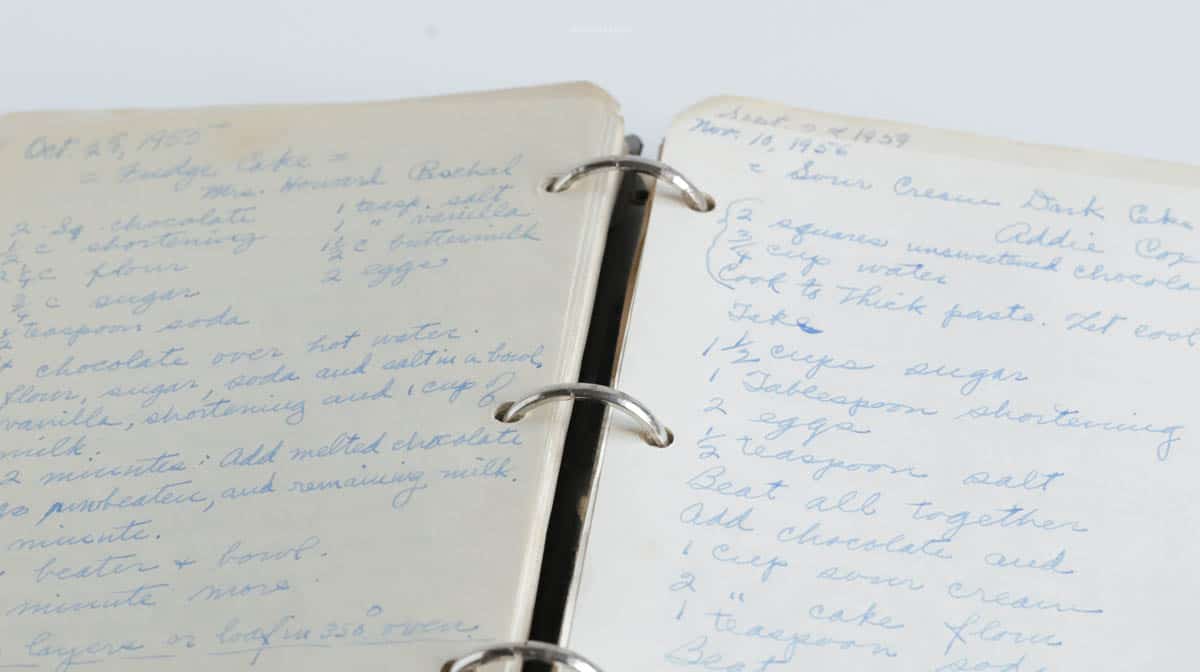 Oct. 29, 1955
= Fudge Cake =
Mrs. Howard Rachal
2 Sq. chocolate
1/2 c shortening
2 1/4 c flour
c sugar
teaspoon soda
1 teasp. salt
1 " vanilla
1 1/2 c buttermilk
2 eggs
chocolate over hot water.
flour, sugar, soda and salt in a bowl,
vanilla, shortening and 1 cup of
milk.
2 minutes: Add melted chocolate
unbeaten, and remaining milk.
minute.
beater + bowl.
minute more.
layers or loaf in 350° oven.
1959
Nov. 10, 1956
Sour Cream Dark Cake
Addie Cox
2 squares unsweetened chocola
3/4 cup water
Cook to thick paste. Let cool
Take
1 1/2 cups sugar
1 Tablespoon shortening
2 eggs
1/2 teaspoon salt
Beat all together
Add chocolate and
1 cup sour cream
2 " cake flour
1 teaspoon sod
Beat